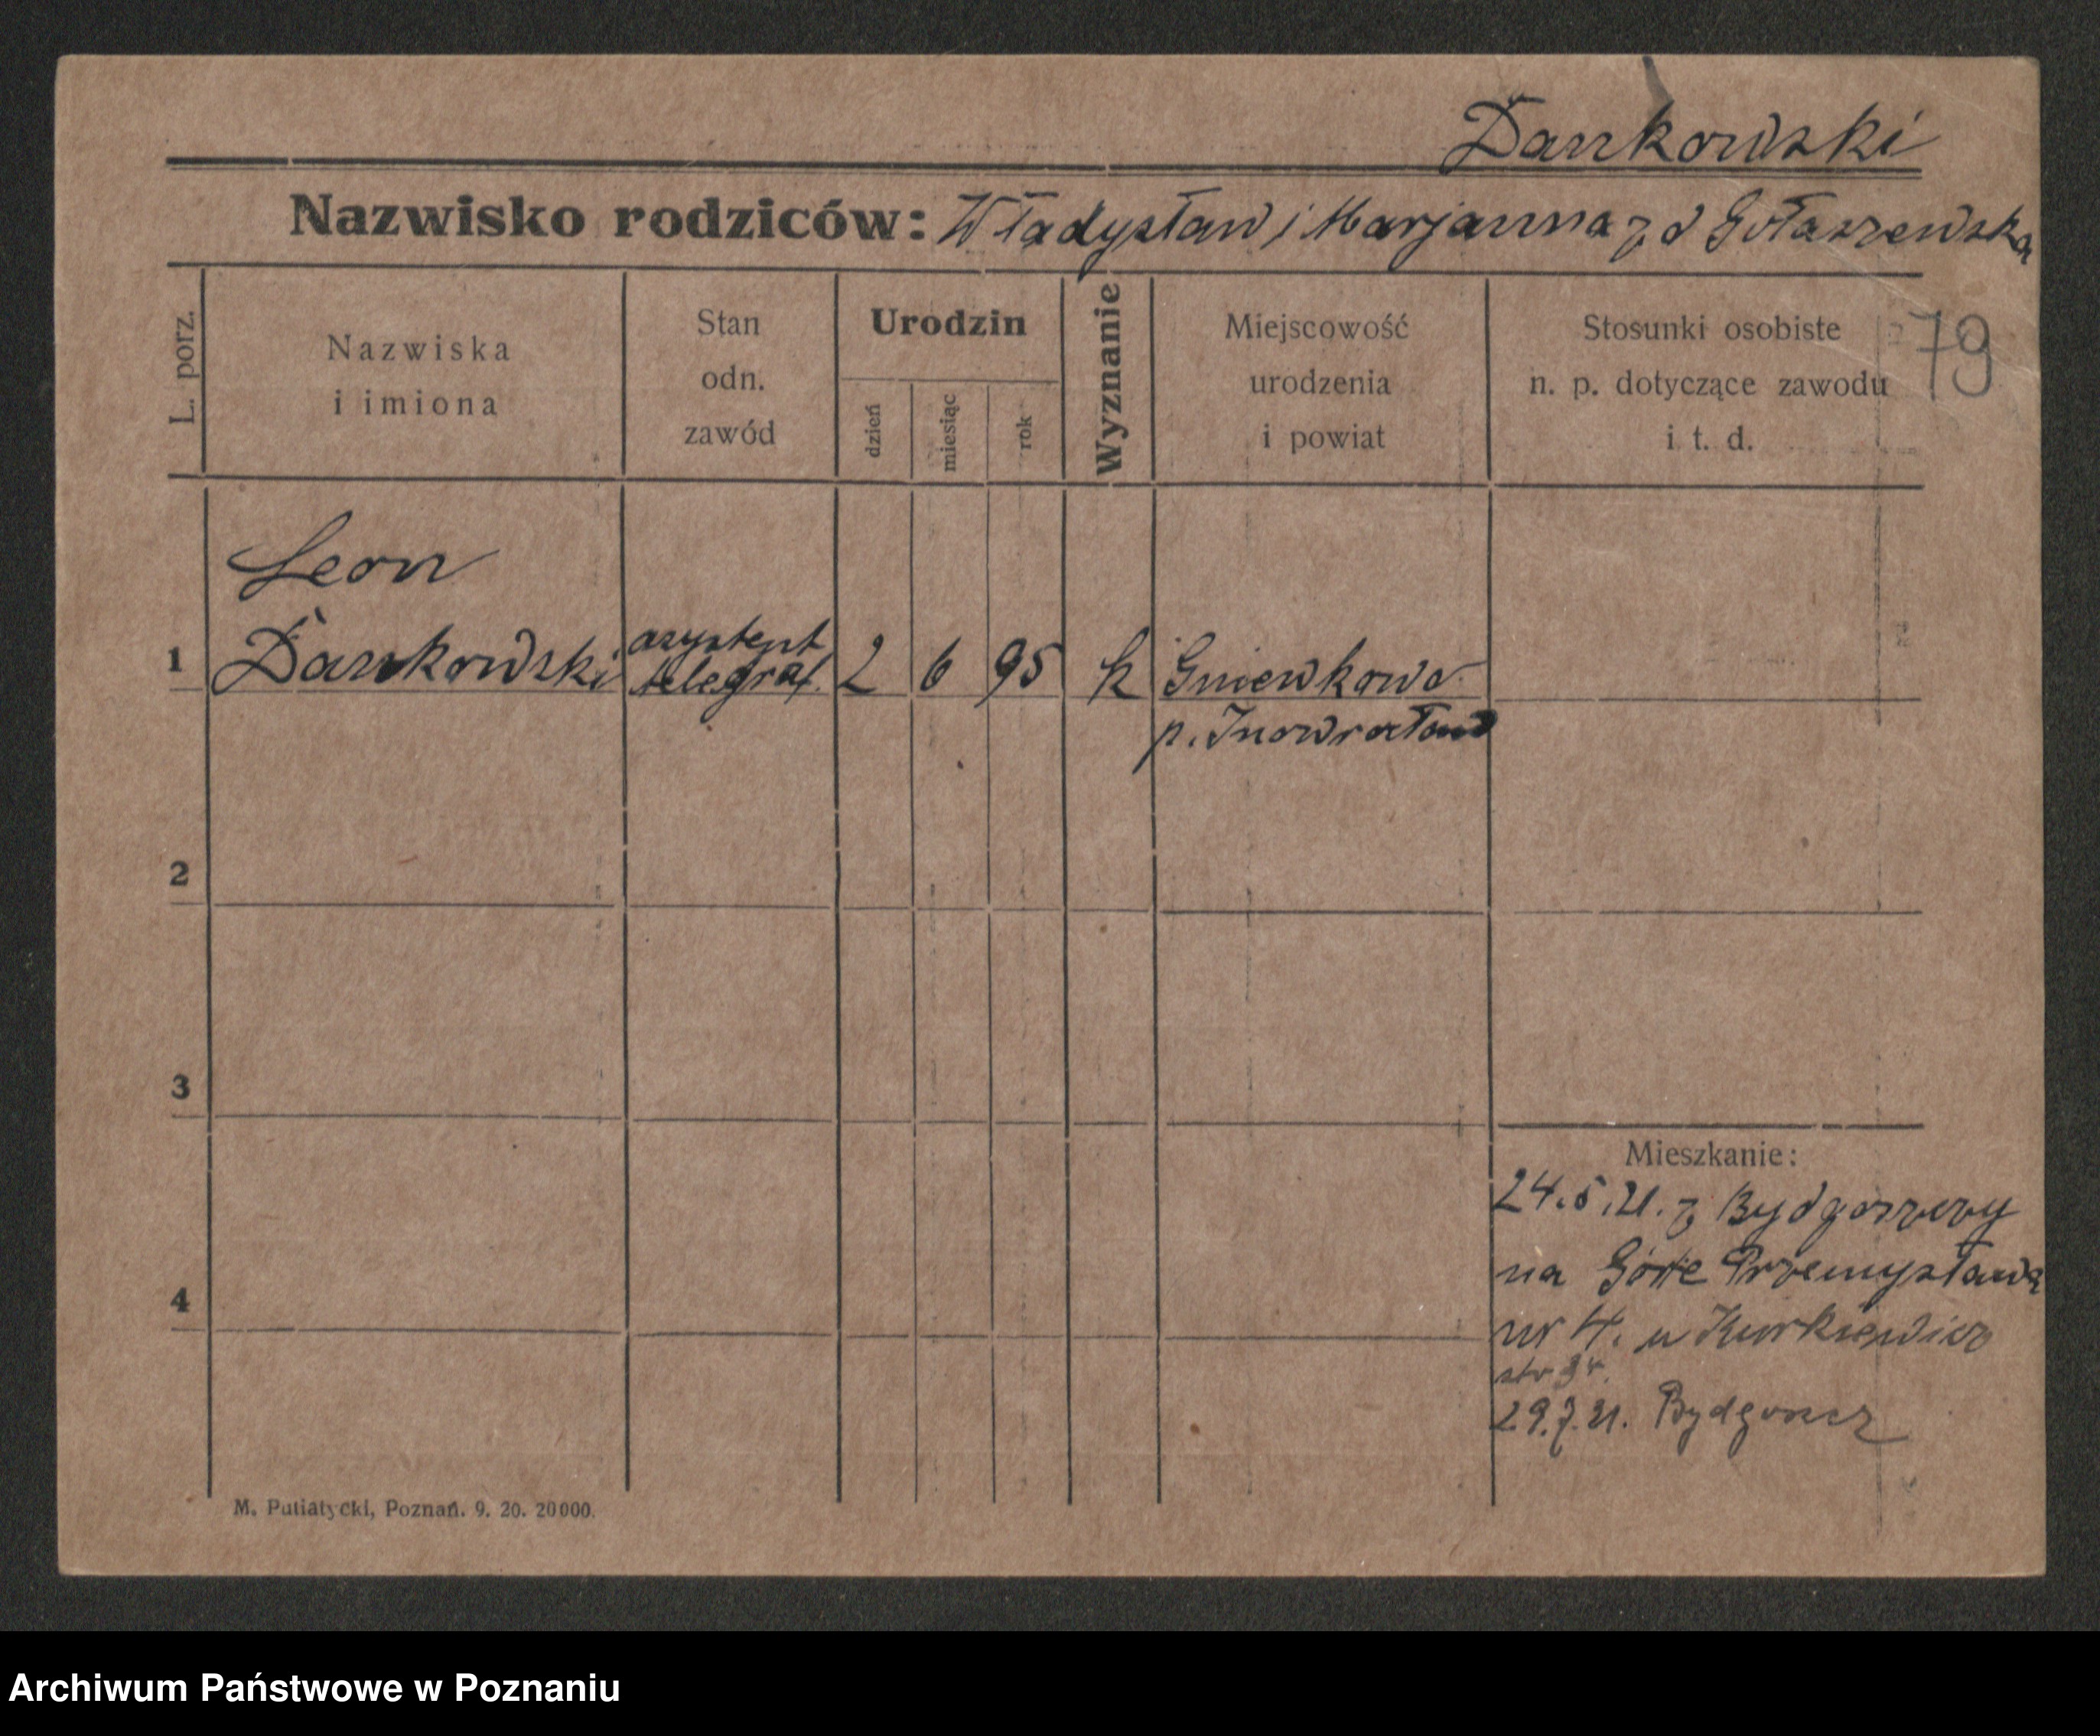 Dankowski
Nazwisko rodziców: Władysław i Marjanna z d Gołaszewska
79
L. porz.
Nazwiska
i imiona
Stan
odn.
zawód
Urodzin
dzień
miesiąc
rok
Wyznanie
Miejscowość
urodzenia
i powiat
Stosunki osobiste
n. p. dotyczące zawodu
i t. d.
Leon
1 Dankowski asystent telegraf. 2 6 95 k Gniewkowo
p. Inowrocław
2
3
4
Mieszkanie:
24.5.21. z Bydgoszczy
na Górze Przemysława
nr 4. u Kurkiewicz
str 34.
29.7.21. Bydgoszcz
M. Putiatycki, Poznań. 9. 20. 20000.
Archiwum Państwowe w Poznaniu